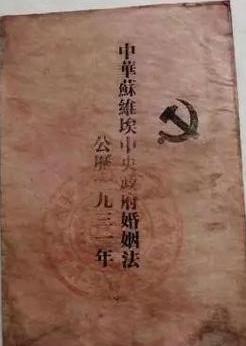 中華蘇維埃中央政府婚姻法
公歷一九三一年